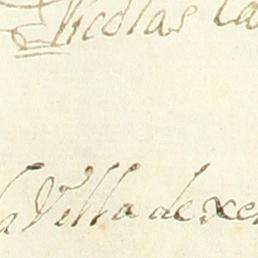 Nicolas
la Villa de xe